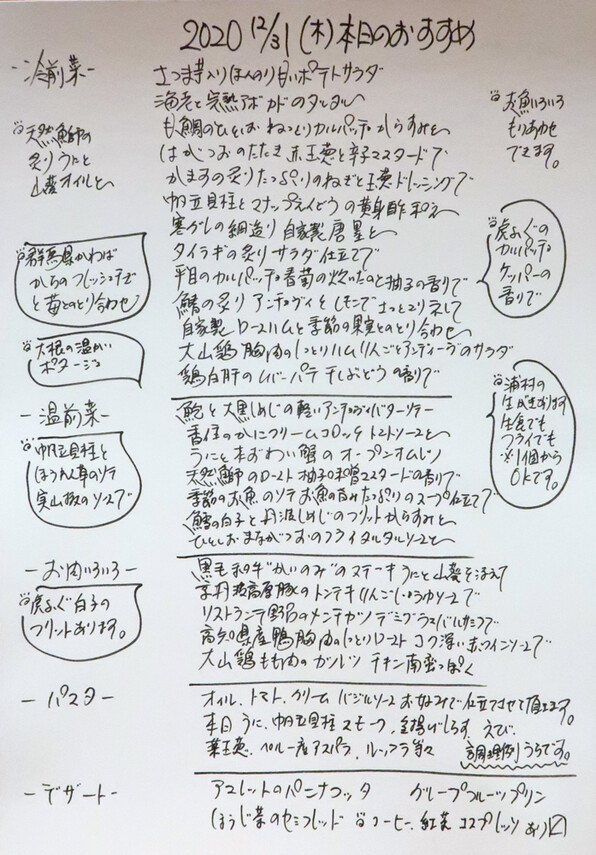 2020 12/31 (木) 本日のおすすめ
-冷前菜-
さつま芋入りほんのり甘いポテトサラダ
海老と完熟アボカドのタルタル
も鯛のひとしお ねっとりカルパッチョ からすみと
はがつおのたたき 赤玉葱と辛子マスタードで
かますの炙り たっぷりのねぎと玉葱ドレッシングで
帆立貝柱とスナップえんどうの黄身酢和え
寒ガレの細造り 自家製唐墨と
タイラギの炙り サラダ仕立てで
平目のカルパッチョ 香菊の炊いたのと柚子の香りで
鰆の炙り アンチョヴィとレモンでさっとソテーして
自家製ロースハムと季節の果実とのとり合わせ
大山鶏胸肉のしっとりハム りんごとアンディーヴのサラダ
鶏白肝のムバーパテ 干しぶどうの香りで
天然鰤の
炙りうにと
山葵オイルと
群馬県かわば
からのフレッシュチーズ
と苺とのとり合わせ
大根の温かい
ポタージュ
お魚いろいろ
もりあわせ
できます。
虎ふぐの
カルパッチョ
ケッパーの
香りで
-温前菜-
鮑と大黒しめじの軽いアンチョヴィバターソテー
香住のかにクリームコロッケ トマトソースと
うにと本おわい蟹のオープンオムレツ
天然鰤のロースト 柚子味噌マスタードの香りで
季節のお魚のソテ お魚の旨みたっぷりのスープ仕立てで
鱈の白子と丹波しめじのフリット からすみと
ひとしおまながつおのフライ タルタルソースと
帆立貝柱と
ほうれん草のソテ
実山椒のソースで
浦村の
生ガキあります
生食でも
フライでも
※1個から
OKです。
-お肉いろいろ-
黒毛和牛"かいのみ"のステーキ うにと山葵をそえて
京丹波高原豚のトンテキ りんごしょうゆソースで
リストランテ野呂のメンチカツ デミグラスバルサミコで
高知県産鴨胸肉のしっとりロースト コク深い赤ワインソースで
大山鶏もも肉のカツレツ チキン南蛮っぽく
虎ふぐ白子の
フリットあります。
-パスタ-
オイル、トマト、クリーム バジルソース お好みで仕立てさせて頂きます。
本日 うに、帆立貝柱スモーク、釜揚げしらす、えび、
葉玉葱、ペルー産アスパラ、ルッコラ等々 調理例うらです。
-デザート-
アマレットのパンナコッタ グレープフルーツプリン
ほうじ茶のセミフレッド コーヒー、紅茶 エスプレッソ あり〼